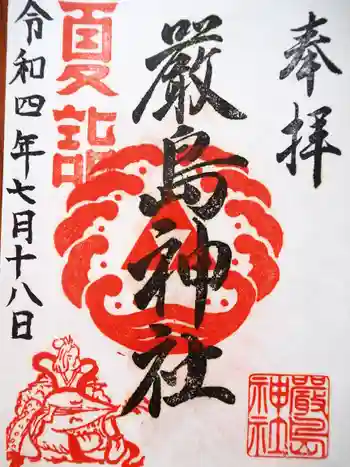 奉拝
嚴島神社
夏詣
令和四年七月十八日
嚴島
神社